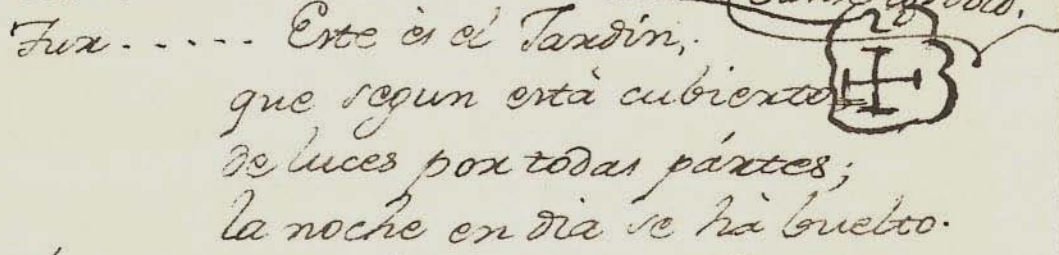 Fur...... Este ès el Jardín,
que segun està cubierto
de luces por todas pártes;
la noche en dia se hà buelto.